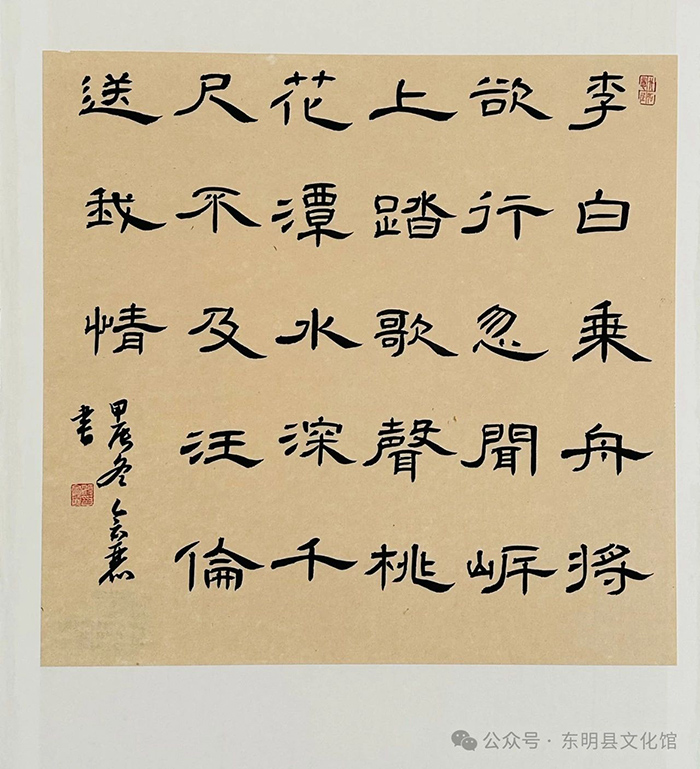 李白乗舟将
欲行忽聞岍
上踏歌聲桃
花潭水深千
尺不及汪倫
送我情
甲辰冬
書
公众号 · 东明县文化馆